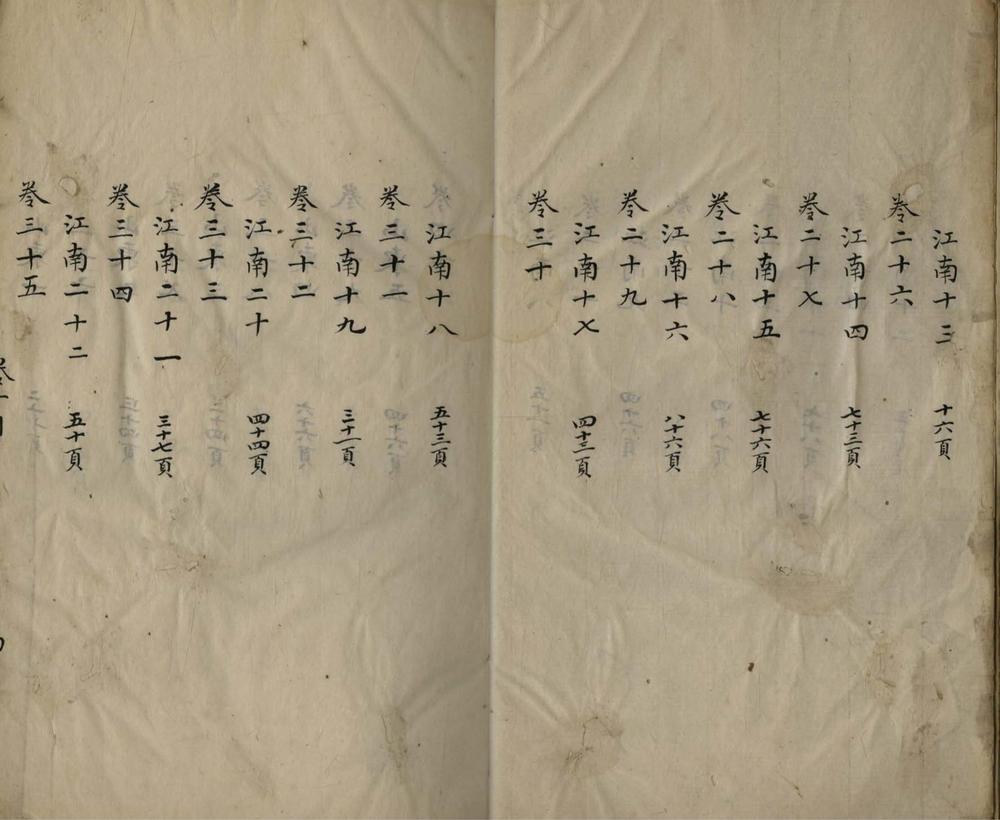 江南十三　十六頁
卷二十六
江南十四　七十三頁
卷二十七
江南十五　七十六頁
卷二十八
江南十六　八十六頁
卷二十九
江南十七　四十三頁
卷三十
江南十八　五十三頁
卷三十一
江南十九　三十一頁
卷三十二
江南二十　四十四頁
卷三十三
江南二十一　三十七頁
卷三十四
江南二十二　五十頁
卷三十五